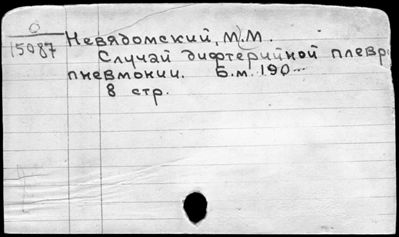 О
15087
Невядомский, М.М.
Случай дифтерийной плевр
пневмонии. Б.м. 190...
8 стр.